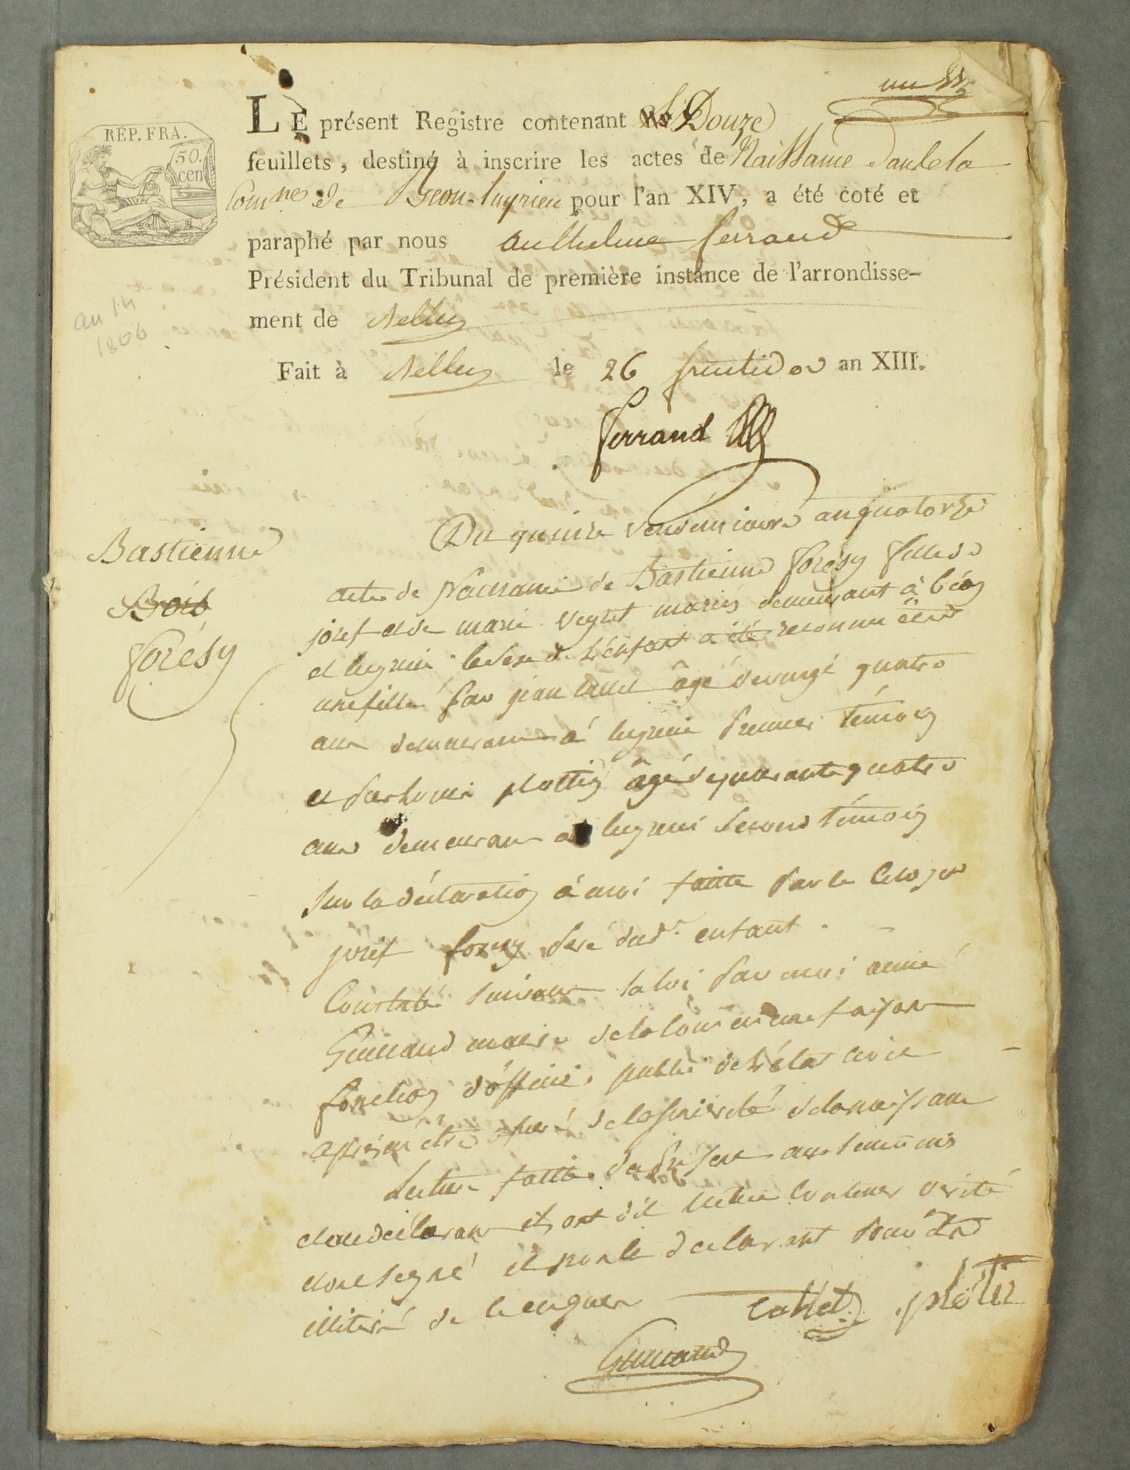 un
RÉP. FRA.
50.
cen
LE présent Registre contenant Douze
feuillets, destiné à inscrire les actes de Naissance dans la
Comne de Béon-luyrieu pour l'an XIV, a été coté et
paraphé par nous anthelme ferrand
Président du Tribunal de première instance de l'arrondisse-
ment de Belley
an 14
1806
Fait à Belley le 26 fructidor an XIII.
ferrand
Bastienne
forésy
Du quinze vendémiaire an quatorze
acte de Naissance de Bastienne forésy fille de
josef et de marie veyret mariés demeurant à béon
et luyrieu le sexe de l'enfant a été reconnu être
une fille par jean âgé de vingt quatre
ans demeurant à luyrieu premier témoin
et par plottin âgé de quarante quatre
ans demeurant à luyrieu second témoin
sur la déclaration à moi faitte par le citoyen
josef foresy père dudt enfant.
Constaté suivant la loi par moi aimé
Guilland maire de la commune faisant
fonction d'officier public de l'état civil
après m'être assuré de la sincérité de la naissance
Lecture faitte du présent aux témoins
et au déclarant ils ont dit icelui contenir vérité
et ont signé et non le déclarant pour être
illiteré de ce enquis
collet plotin
Guilland